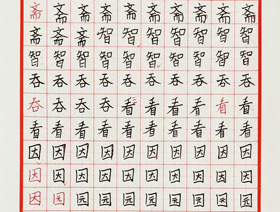 斋斋斋斋斋斋斋斋斋斋
斋斋斋智智智智智智智
智智智智智智智智智智
吞吞吞吞吞吞吞吞吞吞
吞吞吞吞看看看看看看
看看看看看看看看看看
因因因因因因因因因因
因因因因因因因因因因
因园园园园园园园园园